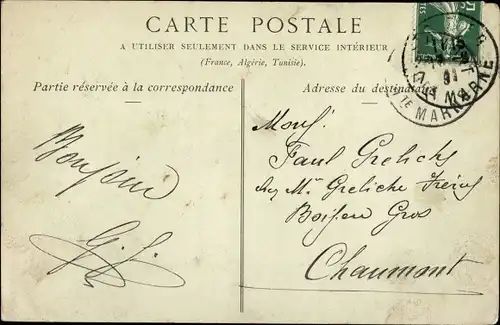 CARTE POSTALE
A UTILISER SEULEMENT DANS LE SERVICE INTÉRIEUR
(France, Algérie, Tunisie).
Partie réservée à la correspondance
Adresse du destinataire
Bonjour
Monsr.
Paul Grelichs
chez Mr Greliche Frères
en Gros
Chaumont
Hte MARNE